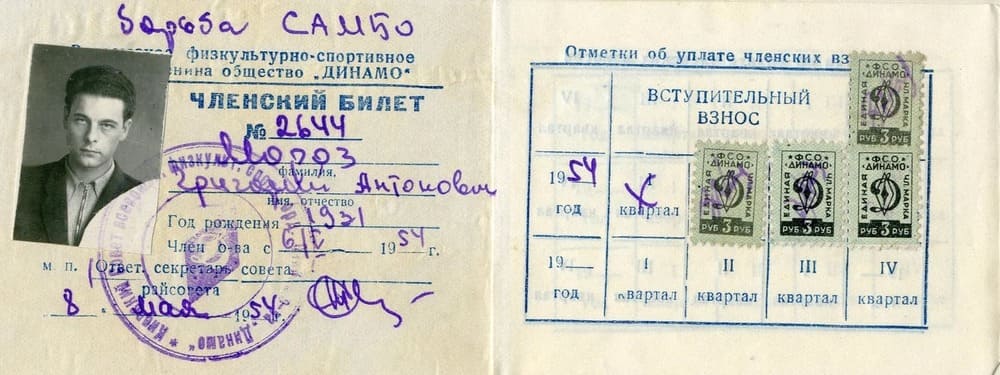 Борьба САМБО
физкультурно-спортивное
ленина общество „ДИНАМО“
ЧЛЕНСКИЙ БИЛЕТ
№ 2644
Мороз
фамилия,
Григорий Антонович
имя, отчество
Год рождения 1931
Член о-ва с 1954 г.
м п. Ответ. секретарь совета
райсовета
8 мая 1954 г.
Отметки об уплате членских вз
ВСТУПИТЕЛЬНЫЙ
ВЗНОС
ФСО
ДИНАМО
ЕДИНАЯ
ЧЛ. МАРКА
РУБ 3 РУБ
1954
год
I
квартал
ФСО
ДИНАМО
ЕДИНАЯ
ЧЛ. МАРКА
РУБ 3 РУБ
ФСО
ДИНАМО
ЕДИНАЯ
ЧЛ. МАРКА
РУБ 3 РУБ
ФСО
ДИНАМО
ЕДИНАЯ
ЧЛ. МАРКА
РУБ 3 РУБ
19
год
I
квартал
II
квартал
III
квартал
IV
квартал